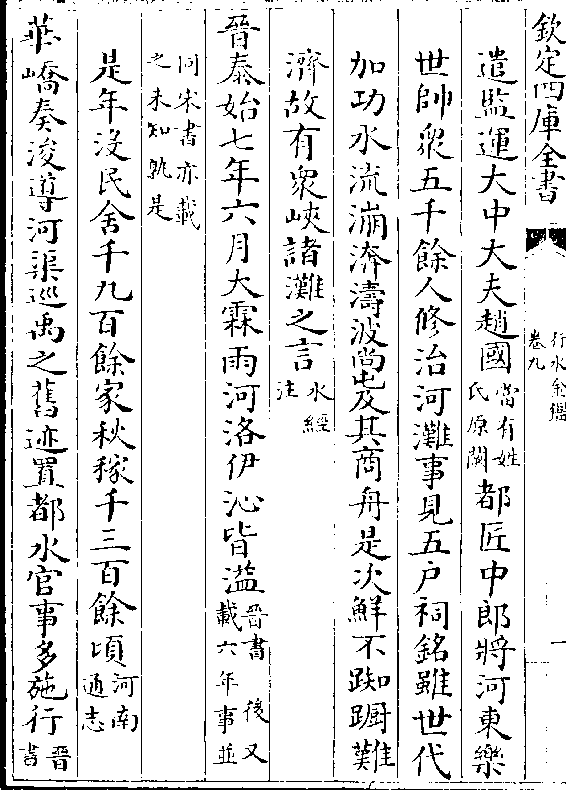 欽定四庫全書
行水金鑑
卷九
遣監運大中大夫趙國當有姓氏原闕都匠中郎將河東樂
世帥衆五千餘人修治河灘事見五户祠銘雖世代
加功水流漰濟濤波尚屯及其商舟是次鮮不踟躕難
濟故有衆峽諸灘之言水經注
晉泰始七年六月大霖雨河洛伊沁皆溢晉書後又載六年事並
同宋書亦載之未知孰是
是年沒民舍千九百餘家秋稼千三百餘頃河南通志
華嶠奏浚導河渠巡禹之舊迹置都水官事多施行晉書